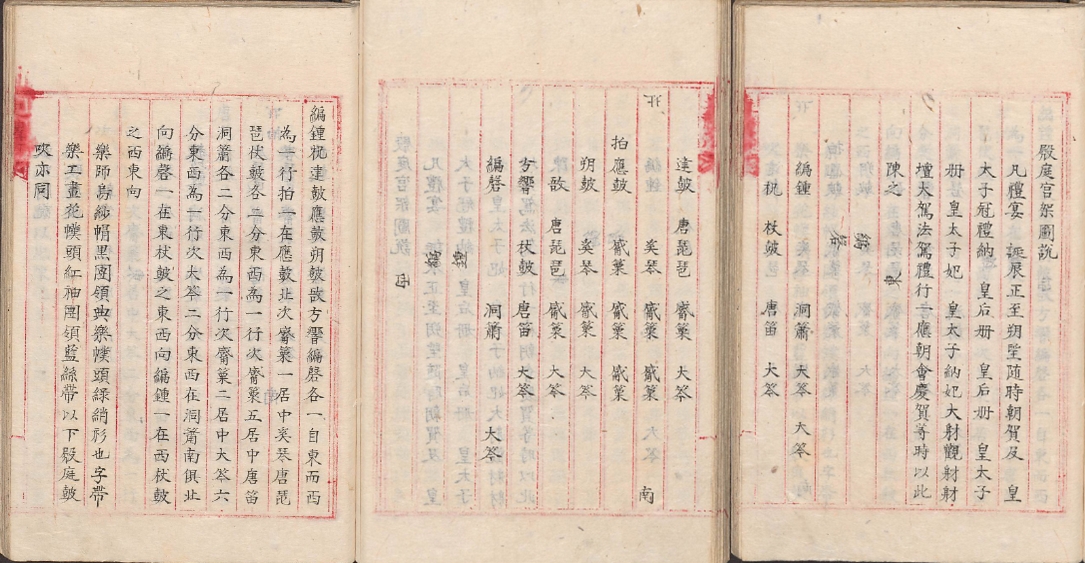 殿庭宮架圖說
凡禮宴 誕辰正至朔望隨時朝賀及 皇
太子冠禮納 皇后冊 皇后冊 皇太子
冊皇太子妃 皇太子納妃大射觀射射
壇大駕法駕禮行幸應朝會慶賀等時以此
陳之 東
編鍾 洞簫 大笒
柷 杖鼓 唐笛 大笒
建鼓 唐琵琶 觱篥 大笒
北 奚琴 觱篥 觱篥 南
拍 應鼓 觱篥 觱篥 觱篥
朔鼓 奚琴 觱篥 大笒
敔 唐琵琶 觱篥 大笒
方響 杖鼓 唐笛 大笒
編磬 洞簫 大笒
西
編鍾柷建鼓應鼓朔鼓敔方響編磬各一自東而西
為一行拍一在應鼓北次觱篥一居中奚琴唐琵
琶杖鼓各二分東西為一行次觱篥五居中唐笛
洞簫各二分東西為一行次觱篥二居中大笒六
分東西為一行次大笒二分東西在洞簫南俱北
向編磬一在東杖鼓之東西向編鍾一在西杖鼓
之西東向
樂師烏紗帽黑團領典樂幞頭綠綃衫也字帶
樂工畫花幞頭紅袖團領藍絲帶以下殿庭鼓
吹亦同